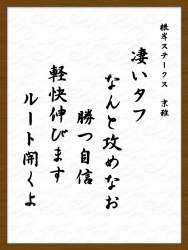 根岸ステークス
凄いタフ
なんと攻めなお
勝つ自信
軽快伸びます
ルート開くよ